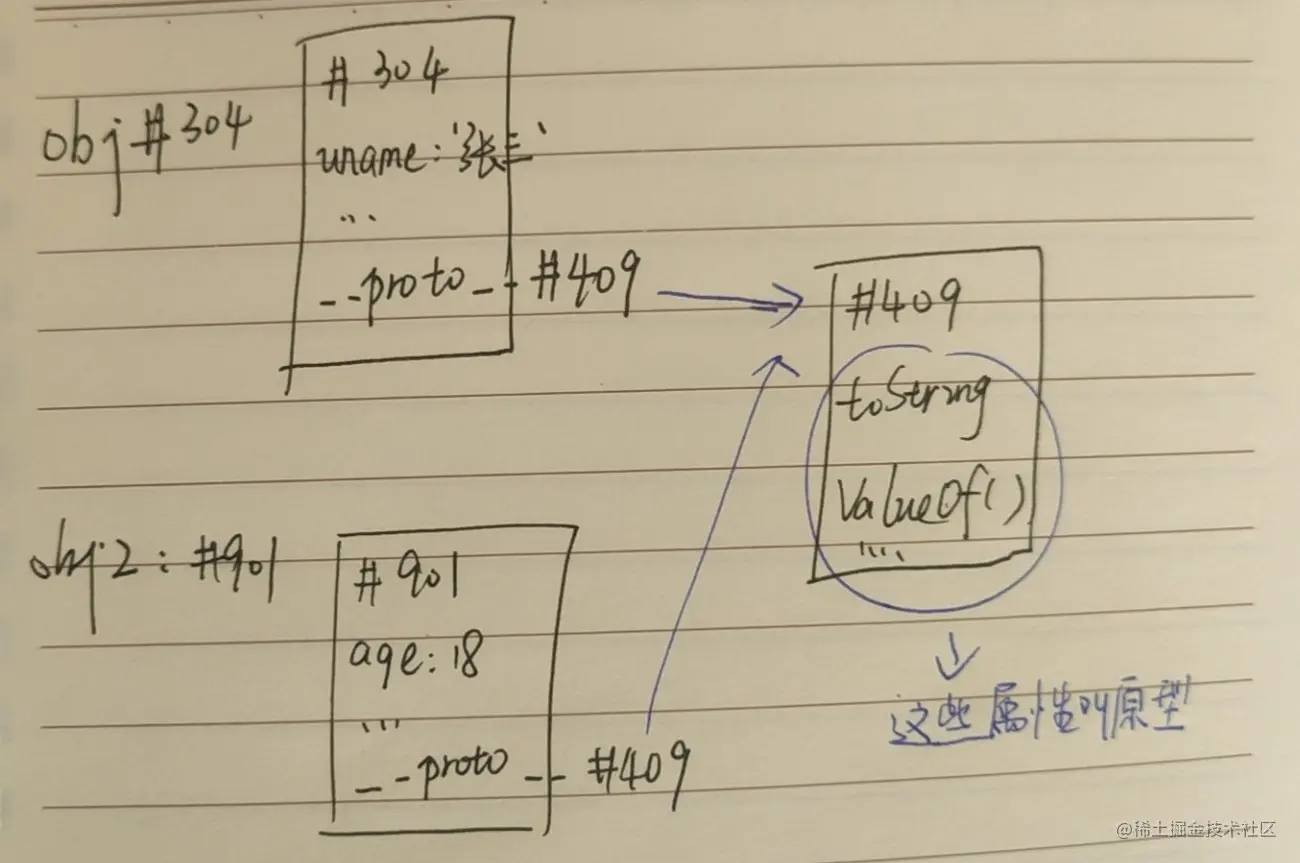 obj #304
# 304
uname: '张三'
...
__proto__ #409
#409
toString
ValueOf()
....
obj2: #901
# 901
age: 18
...
__proto__ #409
这些属性叫原型
@稀土掘金技术社区